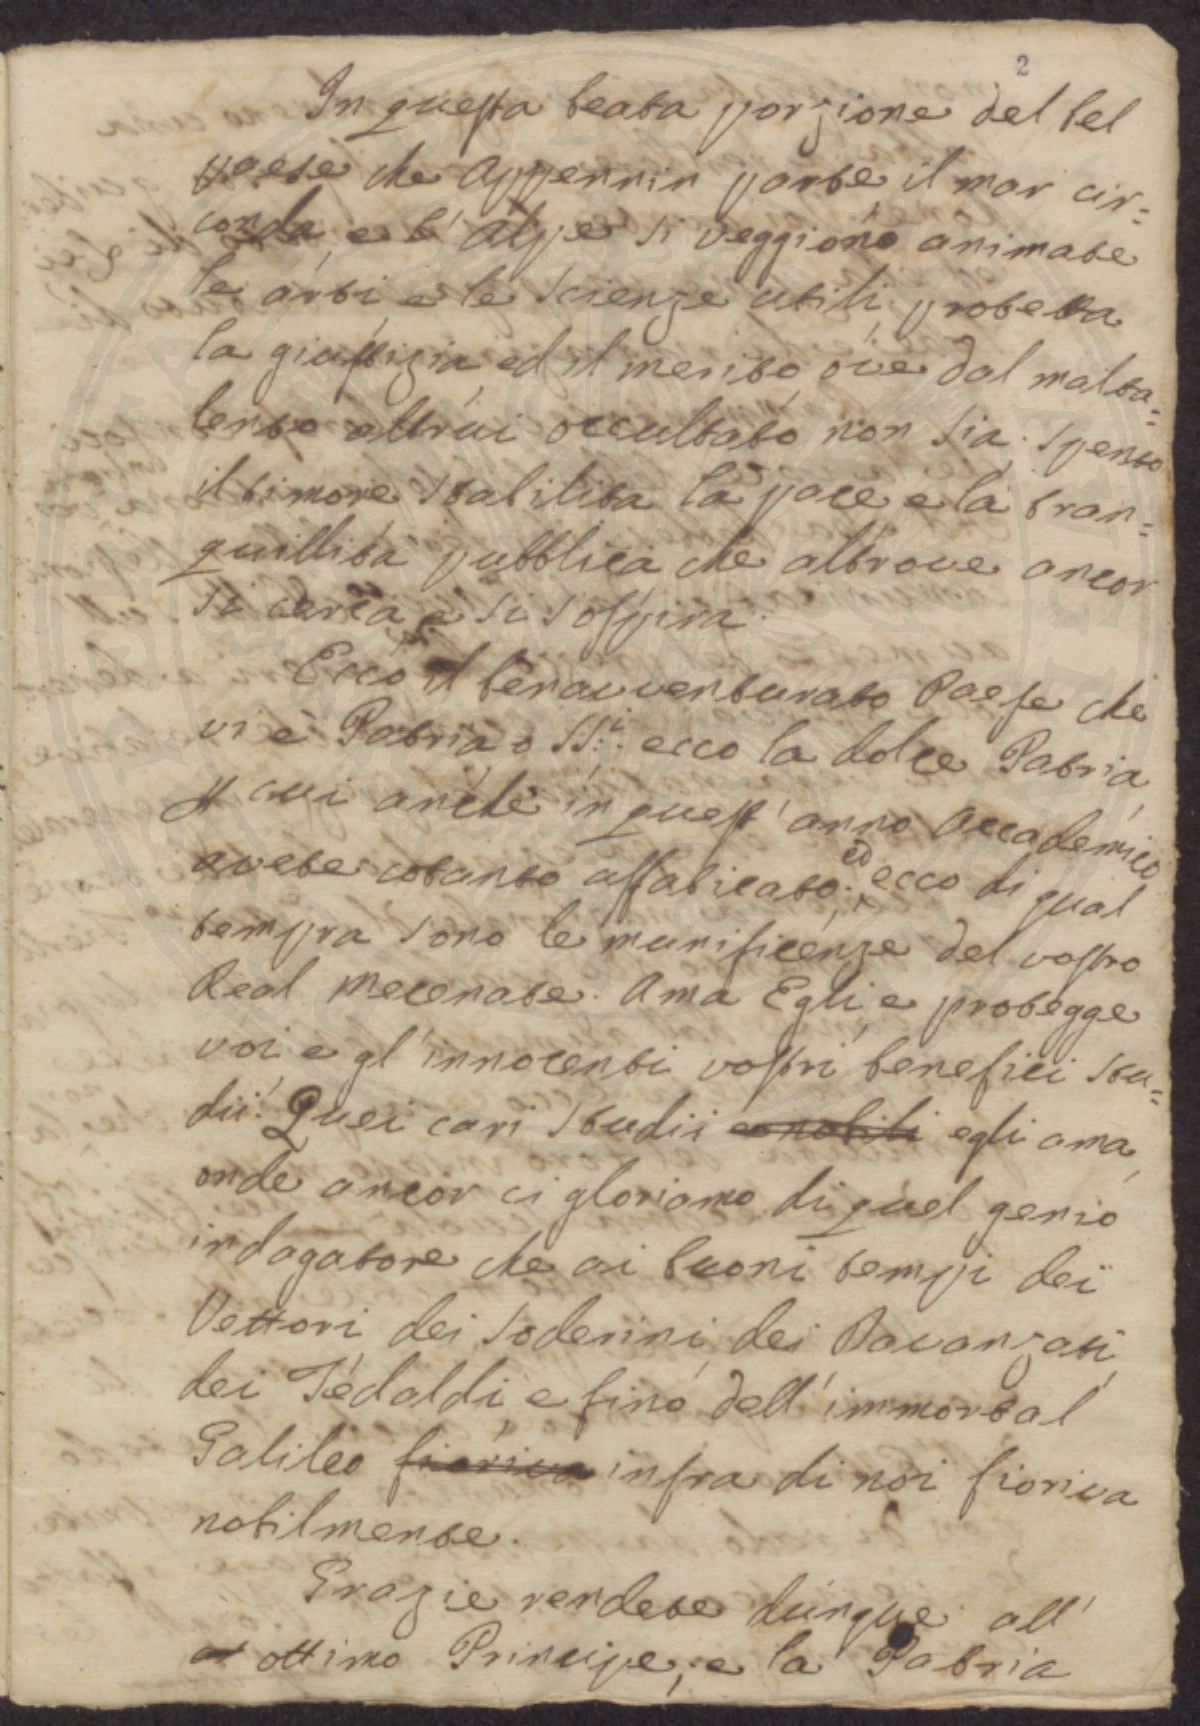 2
In questa beata porzione del bel
paese che Appennin parte, il mar cir=
conda, e l'Alpe si veggiono animate
le arti, e le scienze utili: protetta
la giustizia, ed il merito ove dal malta=
lento altrui occultato non sia: spento
il timore, stabilita la pace e la tran=
quillità pubblica che altrove ancor
si cerca e si sospira.
Ecco il benavventurato Paese che
vi è Patria, o SS:i: ecco la dolce Patria
p cui anche in quest'anno Accademico
avete cotanto affaticato: ed ecco di qual
tempra sono le munificenze del vostro
Real Mecenate. Ama Egli, e protegge
voi e gl'innocenti vostri benefici stu=
dii: Quei cari studii e nobili egli ama,
onde ancor ci gloriamo di quel genio
indagatore che ai buoni tempi dei
Vettori dei Soderini, dei Davanzati,
dei Tedaldi, e fino dell'immortal
Galileo fioriva infra di noi fioriva
nobilmente.
Grazie rendete dunque all'
ottimo Principe, e la Patria